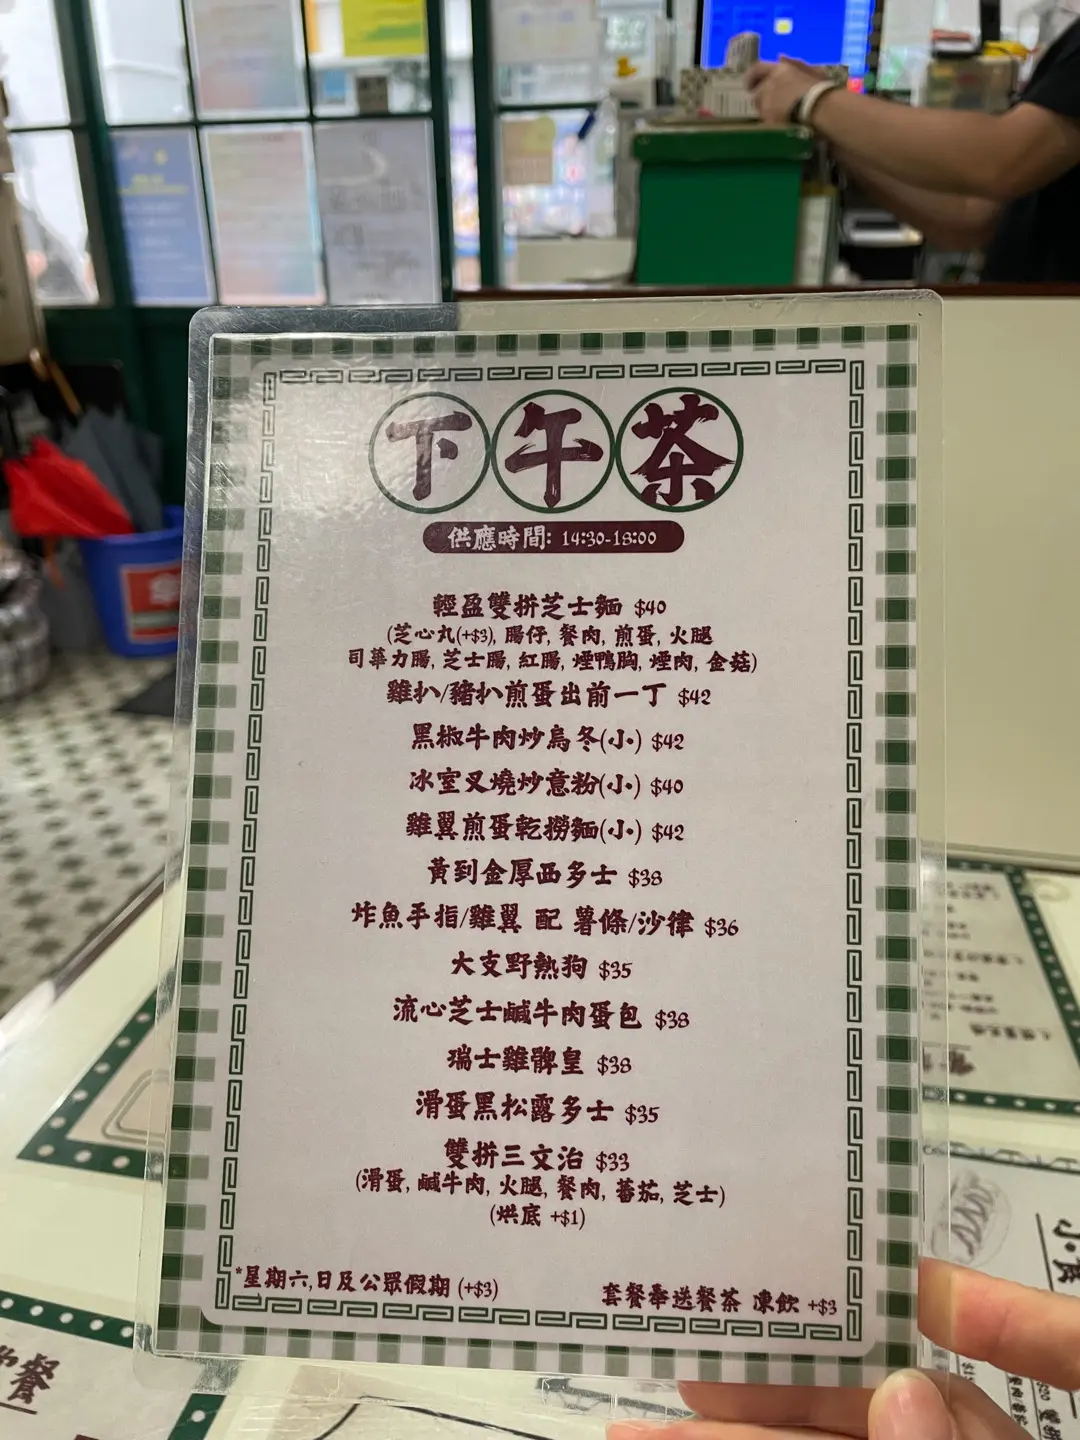 下午茶
供應時間: 14:30-18:00
輕盈雙拼芝士麵 $40
(芝心丸(+$3), 腸仔, 餐肉, 煎蛋, 火腿
司華力腸, 芝士腸, 紅腸, 煙鴨胸, 煙肉, 金菇)
雞扒/豬扒煎蛋出前一丁 $42
黑椒牛肉炒烏冬(小) $42
冰室叉燒炒意粉(小) $40
雞翼煎蛋乾撈麵(小) $42
黃到金厚西多士 $38
炸魚手指/雞翼 配 薯條/沙律 $36
大支野熱狗 $35
流心芝士鹹牛肉蛋包 $38
瑞士雞髀皇 $38
滑蛋黑松露多士 $35
雙拼三文治 $33
(滑蛋, 鹹牛肉, 火腿, 餐肉, 蕃茄, 芝士)
(烘底 +$1)
*星期六,日及公眾假期 (+$3)
套餐奉送餐茶 凍飲 +$3
小食
餐